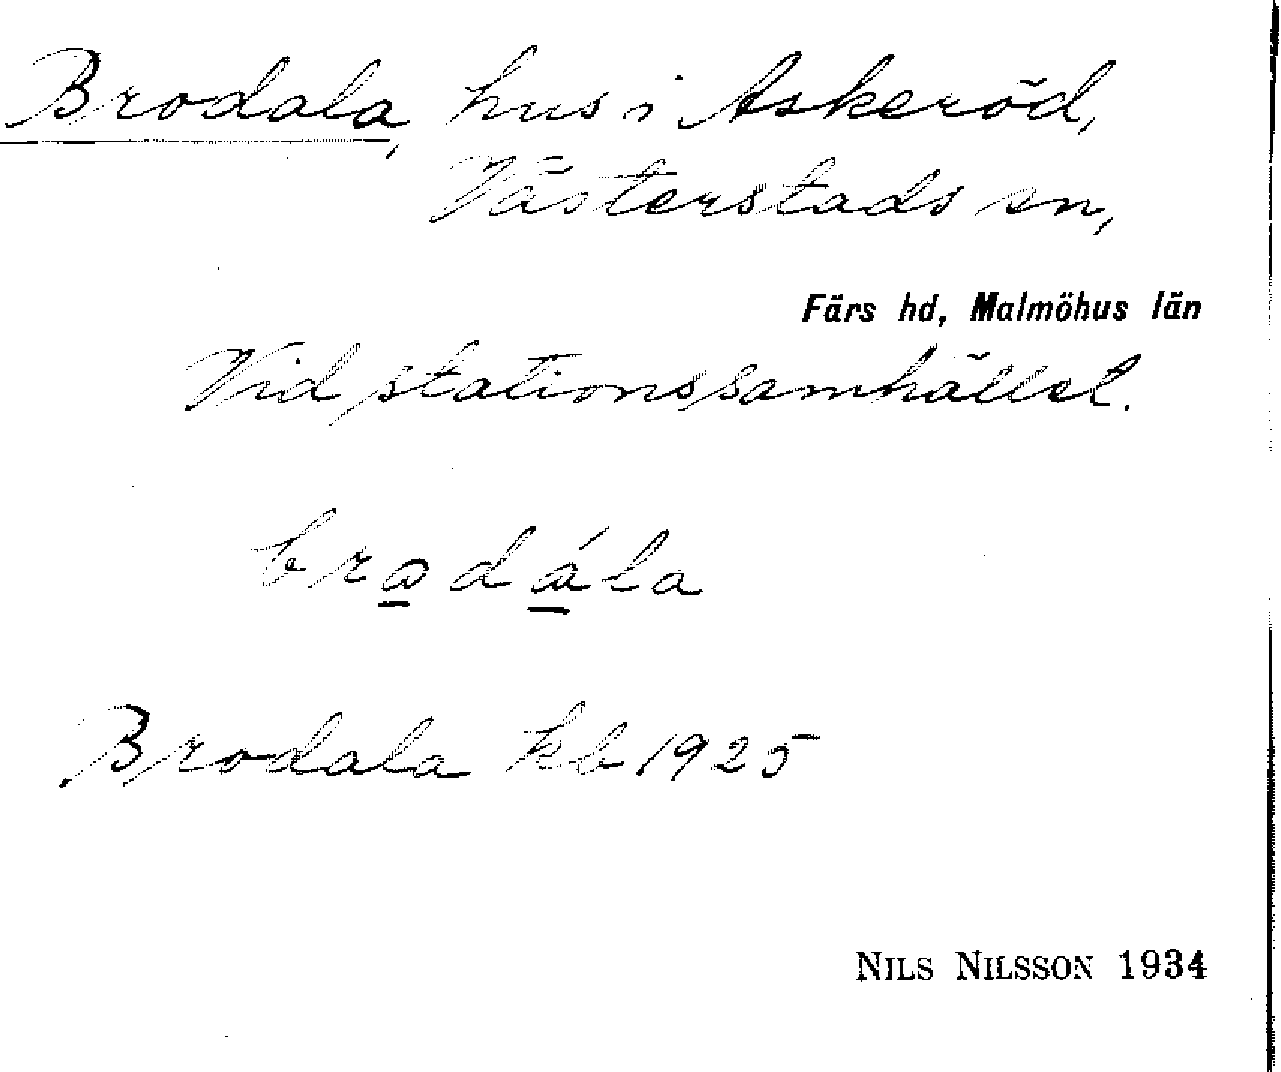 Brodala, hus i Askeröd,
Västerstads sn,
Färs hd, Malmöhus län
Vid stationssamhället.
brodála
Brodala kb 1925
NILS NILSSON 1934